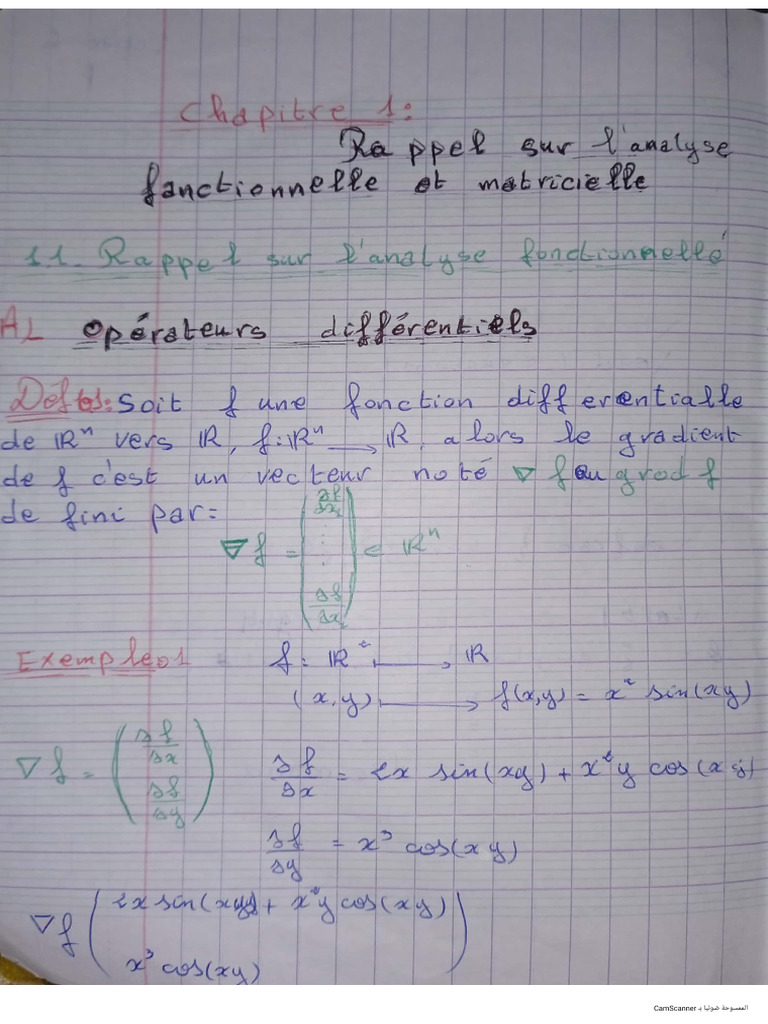 Chapitre 1:
Rappel sur l'analyse
fonctionnelle et matricielle
1.1. Rappel sur l'analyse fonctionnelle
A) Opérateurs différentiels
Déf 01: Soit f une fonction differentialle
de ℝⁿ vers ℝ, f: ℝⁿ → ℝ, alors le gradient
de f c'est un vecteur noté ∇ f ou grad f
de fini par =
∇f = (∂f/∂x₁ ⋮ ∂f/∂xₙ) ∈ ℝⁿ
Exemple 01 f: ℝ² → ℝ
(x,y) → f(x,y) = x² sin(xy)
∇f = (∂f/∂x ∂f/∂y) ∂f/∂x = 2x sin(xy) + x²y cos(xy)
∂f/∂y = x³ cos(xy)
∇f (2x sin(xy) + x²y cos(xy)
x³ cos(xy))
الممسوحة ضوئيا بـ CamScanner